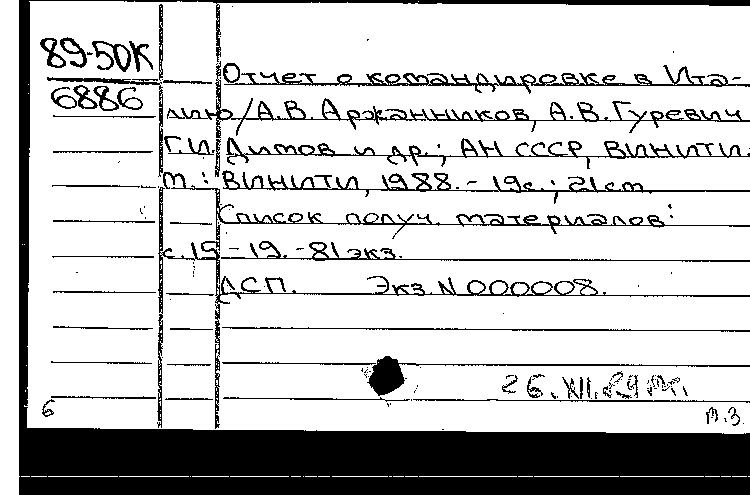 89-50К
6886
Отчет о командировке в Ита-
лию/А.В. Аржанников, А.В. Гуревич
Г.И. Димов и др.; АН СССР, ВИНИТИ.
м.: ВИНИТИ, 1988. - 19с.; 21 см.
Список получ. материалов:
с. 15 - 19. - 81 экз.
ДСП. Экз. N 000008.
26. XII. 89
6
м.з.